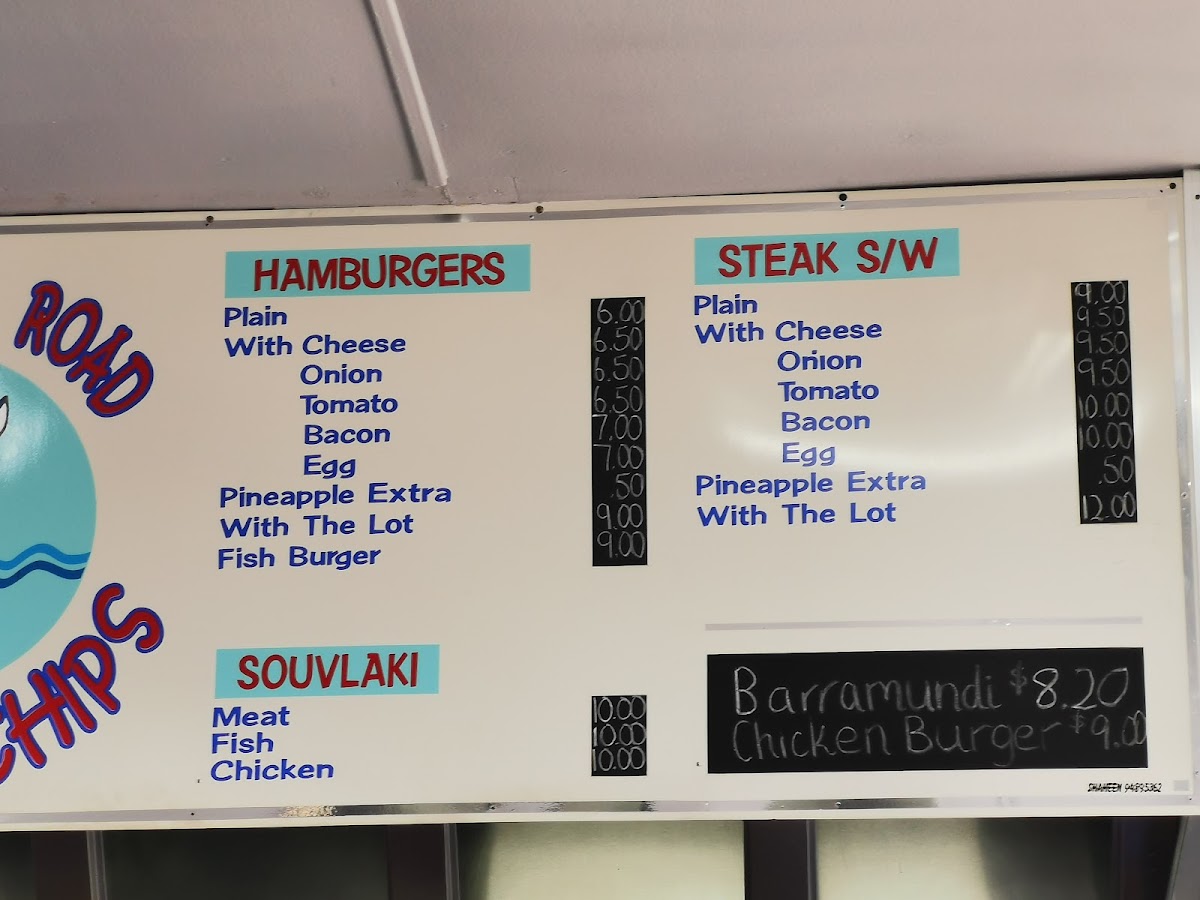 ROAD
CHIPS
HAMBURGERS
Plain 6.00
With Cheese 6.50
Onion 6.50
Tomato 6.50
Bacon 7.00
Egg 7.00
Pineapple Extra .50
With The Lot 9.00
Fish Burger 9.00
SOUVLAKI
Meat 10.00
Fish 10.00
Chicken 10.00
STEAK S/W
Plain 9.00
With Cheese 9.50
Onion 9.50
Tomato 9.50
Bacon 10.00
Egg 10.00
Pineapple Extra .50
With The Lot 12.00
Barramundi $8.20
Chicken Burger $9.00
SHAHEEN 94895362